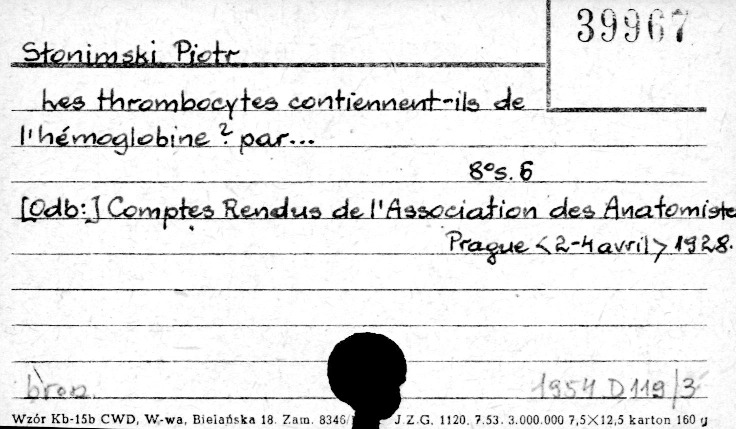 39967
Słonimski Piotr
Les thrombocytes contiennent-ils de
l'hémoglobine? par...
8° s. 6
[Odb:] Comptes Rendus de l'Association des Anatomiste
Prague <2-4 avril> 1928.
brosz. 1954 D 119/3
Wzór Kb-15b CWD, W-wa, Bielańska 18. Zam. 8346/ J.Z.G. 1120. 7.53. 3.000.000 7,5×12,5 karton 160 g